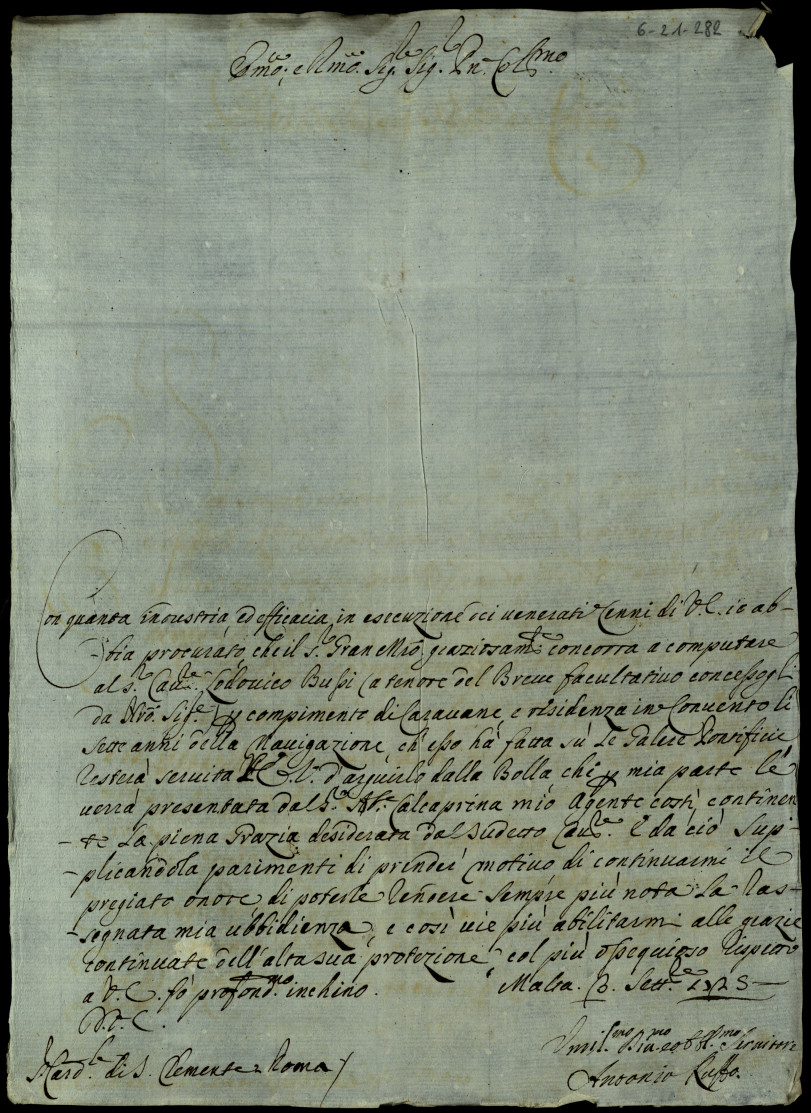 6-21-282
Em̃o, e Rm̃o. Sig.re Sig.re Pn̄e Col.mo
Con quanta industria, ed efficacia, in esecuzione dei venerati Cenni di V.E. io ab-
-bia procurato che il S.r Gran Mrõ. graziosam.te concorra a computare
al S.r Cav.re Lodovico Bussi (a tenore del Breve facultativo concessogli
da Nrõ. Sig.re) p compimento di Caravane, e residenza in Convento li
Sette anni della Navigazione, ch'esso hà fatta sù le Galere Pontificie
resterà servita V.E. d'arguirlo dalla Bolla che p mia parte le
verrà presentata dal S.r Calcaprina mio Agente costì, continen-
-te la piena Grazia desiderata dal Sudetto Cav.re E da ciò Sup-
-plicandola parimenti di prender motivo di continuarmi il
pregiato onore di poterle rendere sempre più nota la ras-
-segnata mia ubbidienza, e così vie più abilitarmi alle grazie
continuate dell'alta sua protezione, col più ossequioso rispetto
a V.E. fò profond.mo inchino. Malta. Sett.re
D.V.E.
Card.le di S. Clemente = Roma /
Umil.mo Div.mo ed Obbl.mo Servitore
Antonio Ruffo.